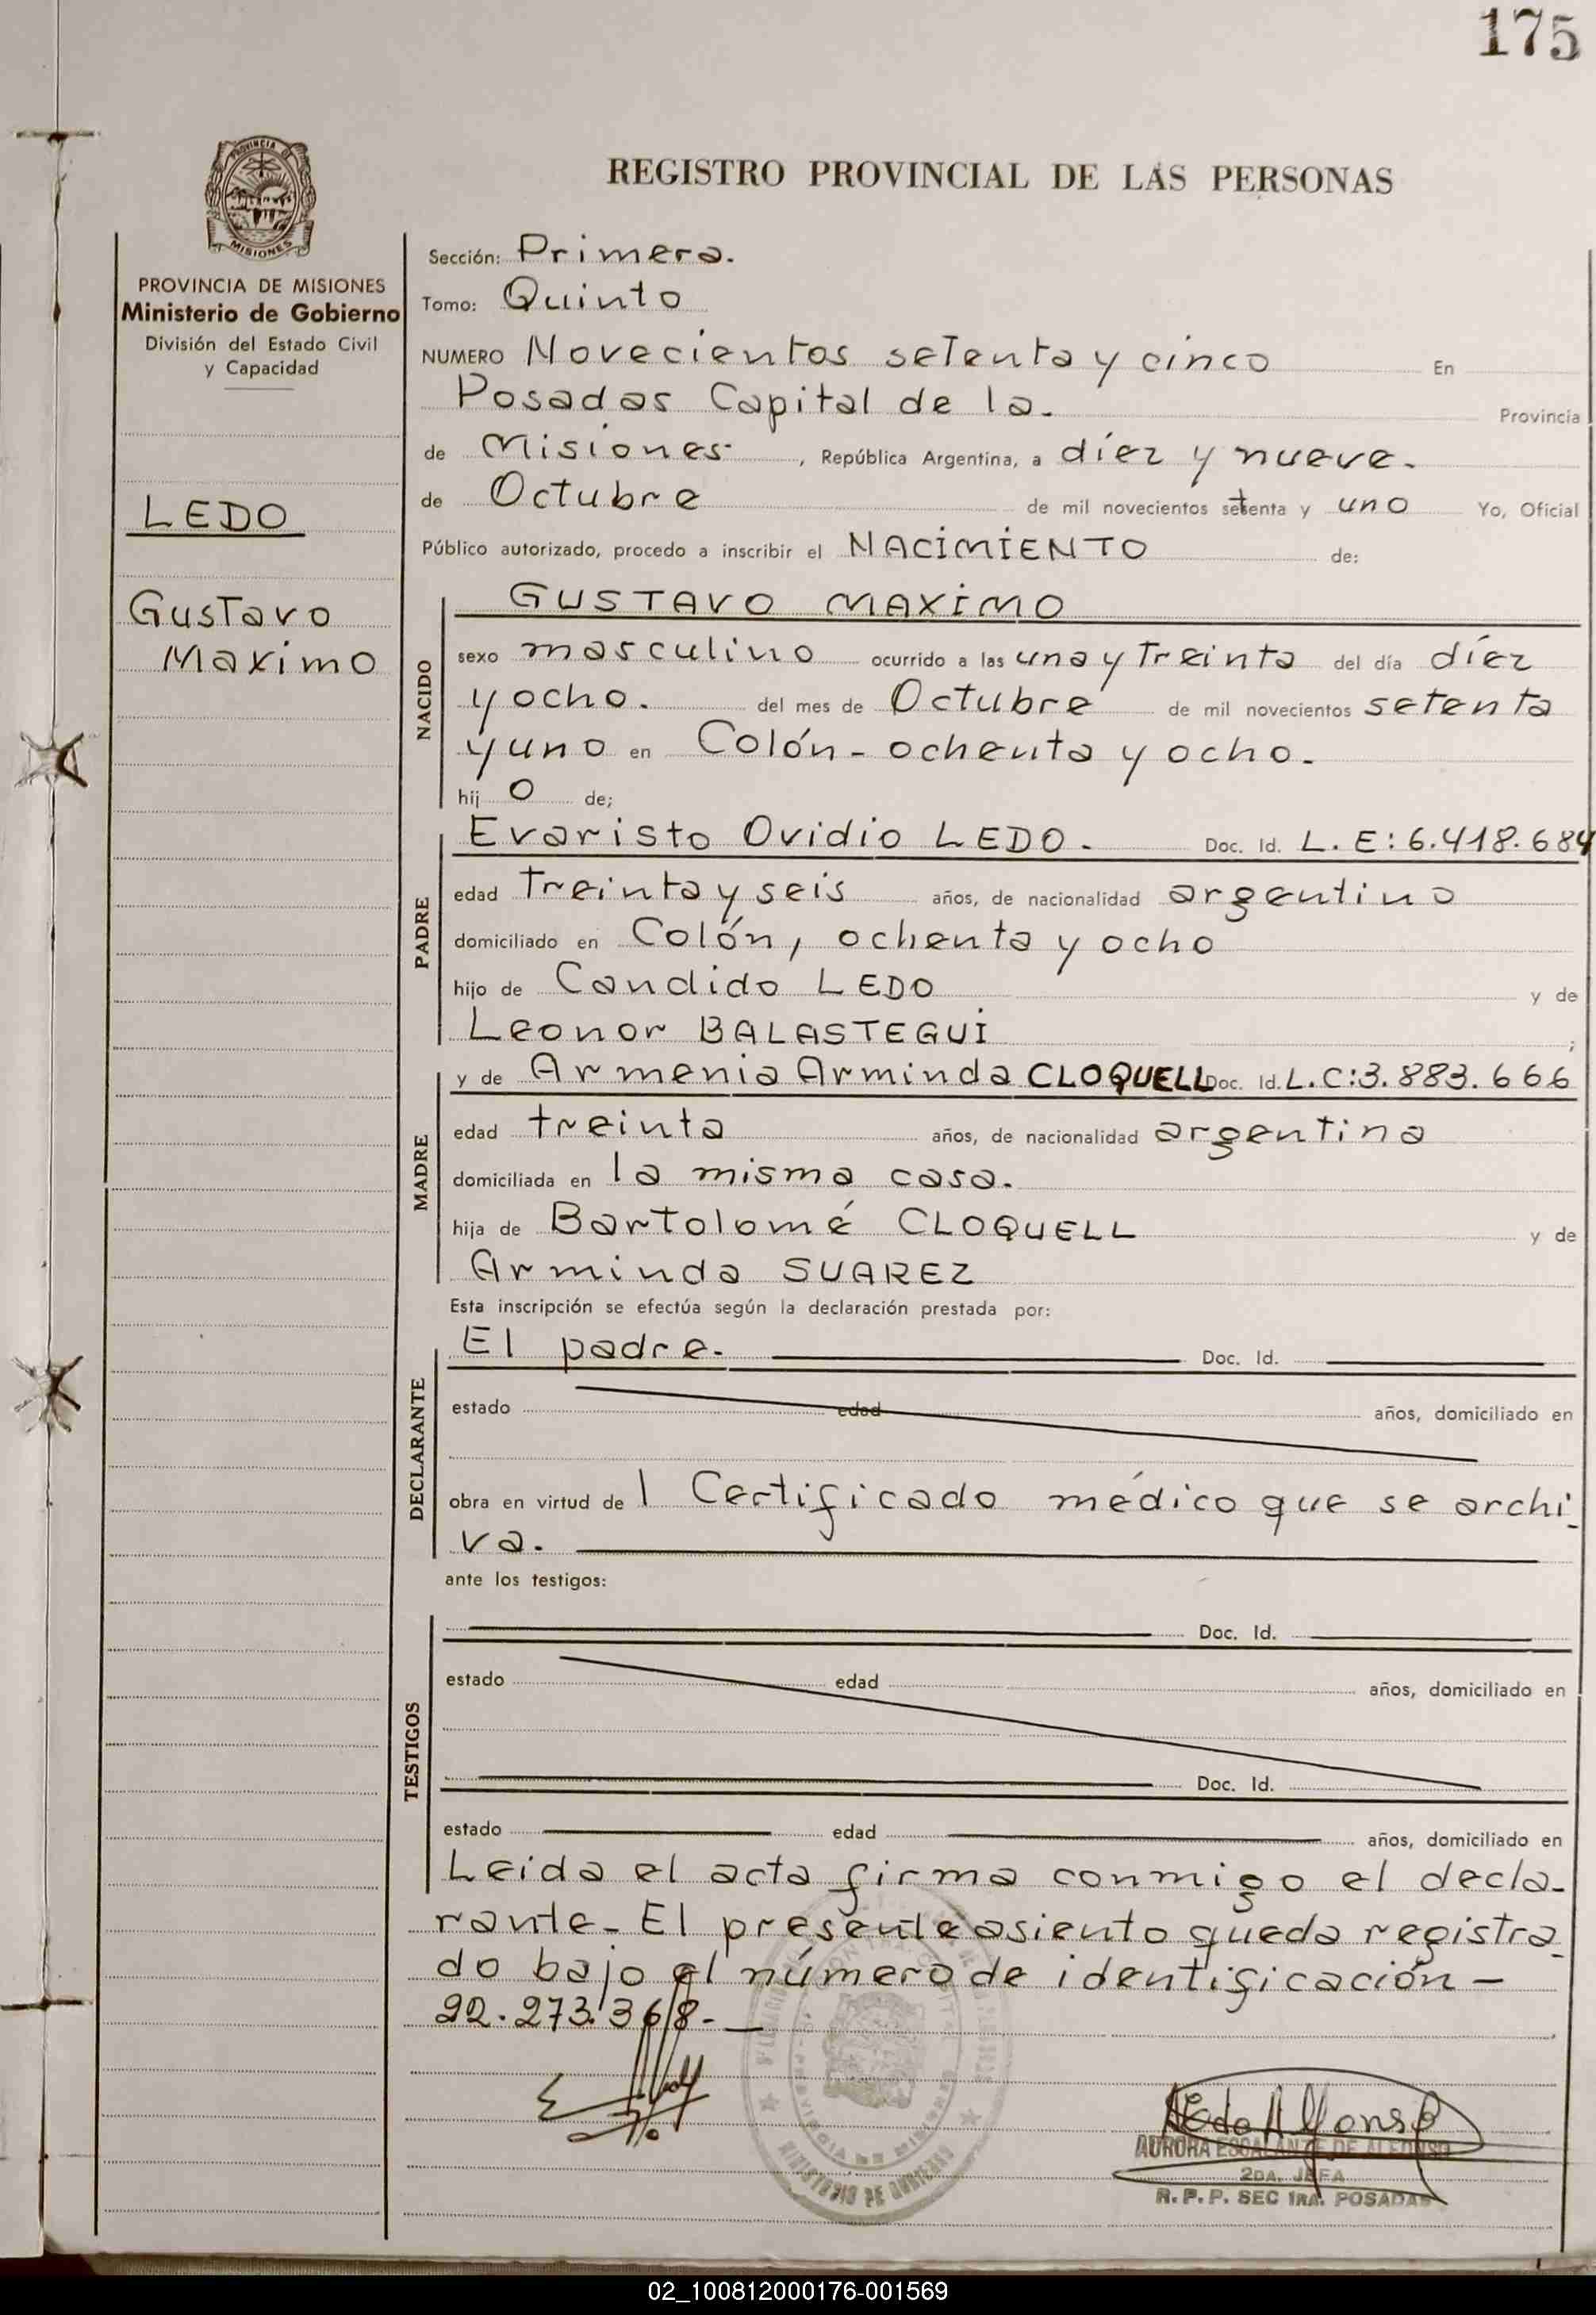 175
PROVINCIA DE
MISIONES
REGISTRO PROVINCIAL DE LAS PERSONAS
PROVINCIA DE MISIONES
Ministerio de Gobierno
División del Estado Civil
y Capacidad
LEDO
Gustavo
Maximo
Sección: Primera.
Tomo: Quinto
NUMERO Novecientos setenta y cinco En
Posadas Capital de la. Provincia
de Misiones , República Argentina, a díez y nueve.
de Octubre de mil novecientos setenta y uno Yo, Oficial
Público autorizado, procedo a inscribir el NACIMIENTO de:
NACIDO
GUSTAVO MAXIMO
sexo masculino ocurrido a las una y treinta del día díez
y ocho. del mes de Octubre de mil novecientos setenta
y uno en Colón - ochenta y ocho.
hij o de;
PADRE
Evaristo Ovidio LEDO. Doc. Id. L. E: 6.418.684
edad treinta y seis años, de nacionalidad argentino
domiciliado en Colón, ochenta y ocho
hijo de Candido LEDO y de
Leonor BALASTEGUI ;
MADRE
y de Armenia Arminda CLOQUELL Doc. Id. L.C:3.883.666
edad treinta años, de nacionalidad argentina
domiciliada en la misma casa.
hija de Bartolomé CLOQUELL y de
Arminda SUAREZ
Esta inscripción se efectúa según la declaración prestada por:
DECLARANTE
El padre. Doc. Id.
estado edad años, domiciliado en
obra en virtud de l Certificado médico que se archi-
va.
ante los testigos:
TESTIGOS
Doc. Id.
estado edad años, domiciliado en
Doc. Id.
estado edad años, domiciliado en
Leida el acta firma conmigo el decla-
rante- El presente asiento queda registra-
do bajo el número de identificación -
22.273.368.-
MINISTERIO DE GOBIERNO
AURORA ESCALANTE DE ALFONSO
2DA. JEFA
R. P. P. SEC 1RA. POSADAS
02_100812000176-001569